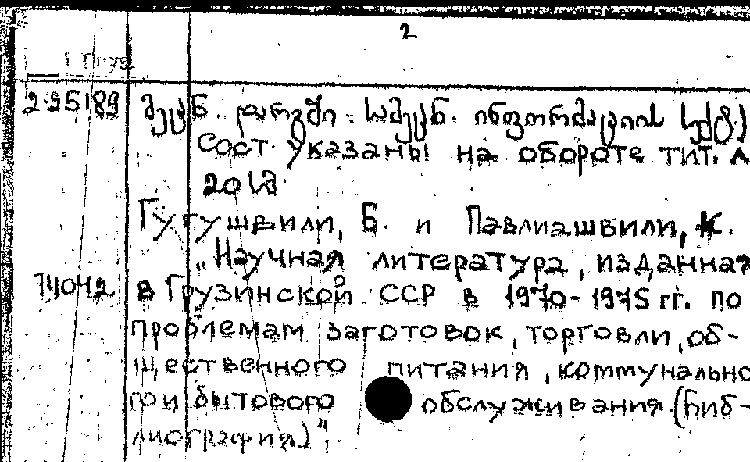 2
2-95189 მეცნ. დარგში. სამეცნ. ინფორმაციის სექტ.)
Сост. указаны на обороте тит. л
20 სმ.
Гугушвили, Б. и Павлиашвили, К.
„Научная литература, изданная
74042 в Грузинской ССР в 1970-1975 гг. по
проблемам заготовок, торговли, об-
щественного питания, коммунально
го и бытового обслуживания (биб-
лиография)“